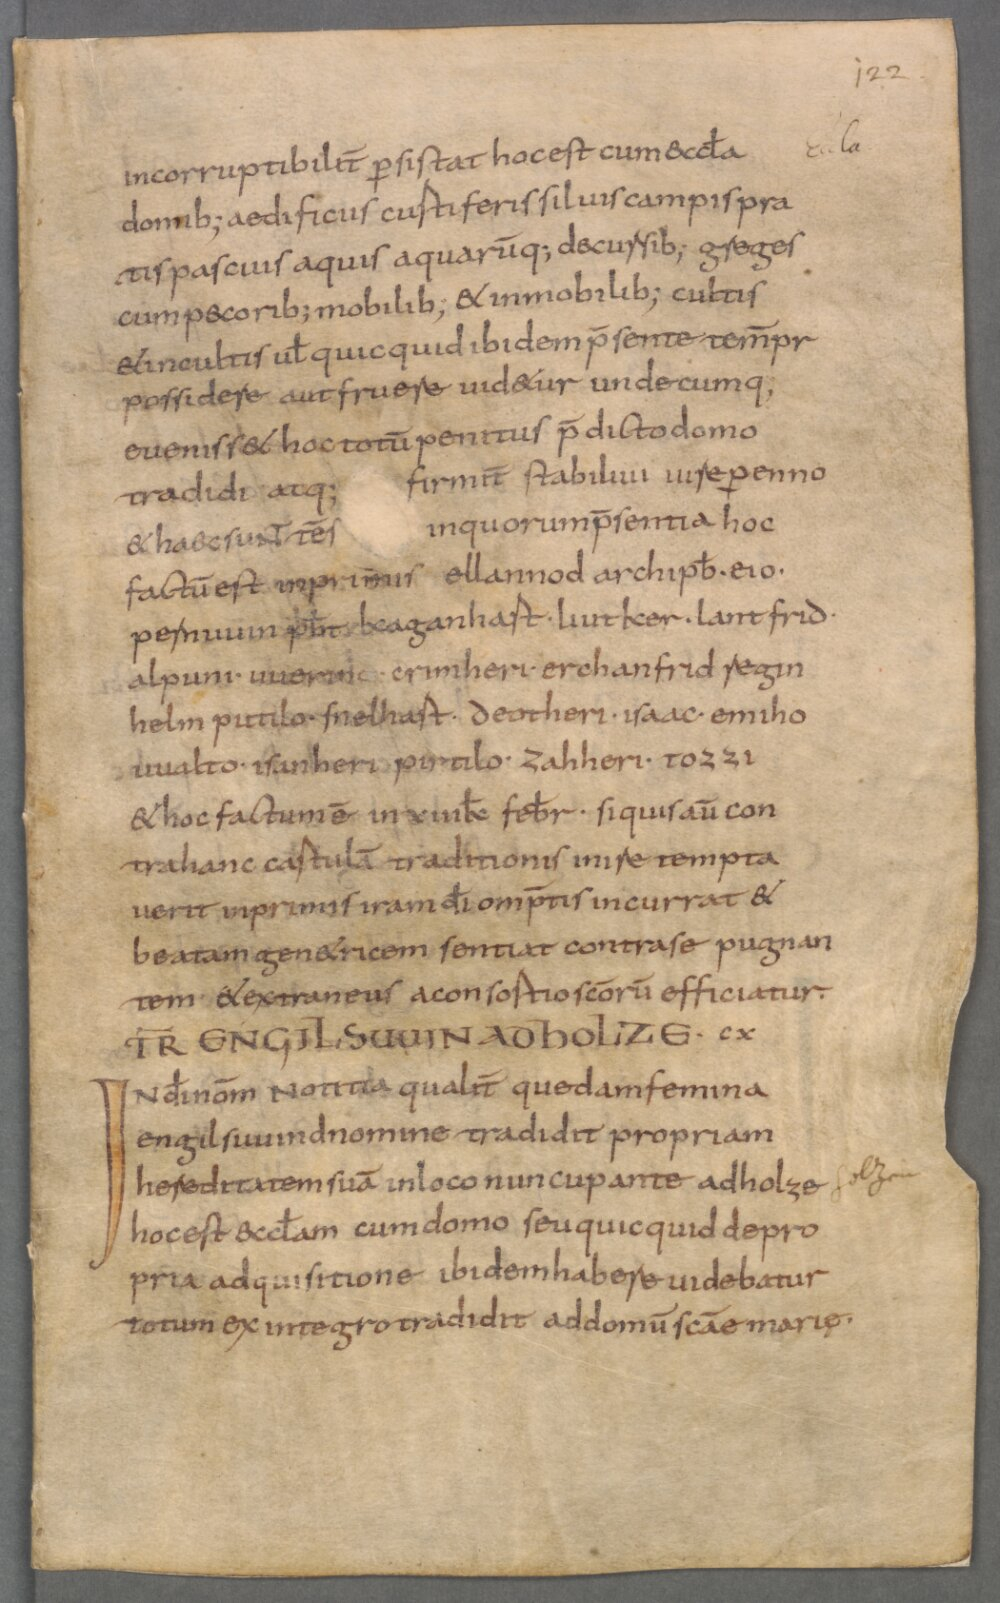 122
incorruptibilit̄ p̄sistat hoc est cum &ccƚa
domib; aedificiis custiferis siluis campis pra
tis pascuis aquis aquarūq; decursib; greges
cum p&corib; mobilib; & inmobilib; cultis
& incultis uƚ quicquid ibidem p̄sente tem̄pr
possidere aut fruere uid&ur undecumq;
eueniss& hoc totū penitus p̄dicto domo
tradidi atq; firmit̄ stabiliui iure perenno
& haec sunt tēs in quorum p̄sentia hoc
factū est inprimis ellannod archipƀ · eio ·
pernuuin pƀt kaganhast · liutker · lantfrid ·
alpuni · uuerinc · crimheri · erchanfrid regin
helm pittilo · snelhast · deotheri · isaac · emiho
uualto · isanheri pirtilo · zahheri · tozzi
& hoc factum ē in xiiii kƚ feƀr · siquis aū con
tra hanc castulā traditionis inire tempta
uerit inprimis iram dī omp̄tis incurrat &
beatam gen&ricem sentiat contra se pugnan
tem & extraneus a consostio scōrū efficiatur.
TR̄ ENGILSUUIN AD HOLZE · cx
IN dī nōm Notitia qualit̄ quedam femina
engilsuuind nomine tradidit propriam
hereditatem suā in loco nuncupante ad holze
holzen
hoc est &ccƚam cum domo seu quicquid de pro
pria adquisitione ibidem habere uidebatur
totum ex integro tradidit ad domū scāe marię.